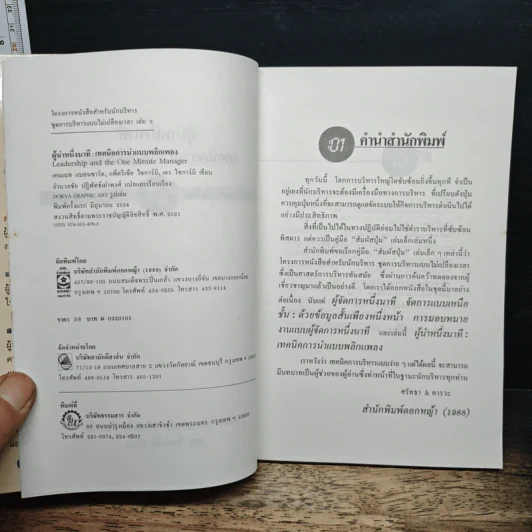 โครงการหนังสือสำหรับนักบริหาร
ชุดการบริหารแบบไม่เปลืองเวลา เล่ม 6
ผู้นำหนึ่งนาที : เทคนิคการนำแบบพลิกเพลง
Leadership and the One Minute Manager
พิมพ์ครั้งแรก มิถุนายน 2534
สงวนลิขสิทธิ์ตามพระราชบัญญัติลิขสิทธิ์ พ.ศ. 2521
จัดพิมพ์โดย
บริษัทสำนักพิมพ์ดอกหญ้า (1988) จำกัด
ราคา 58 บาท
จัดจำหน่ายโดย
พิมพ์ที่
บริษัทธรรมสาร จำกัด
คำนำสำนักพิมพ์
ทุกวันนี้ โลกการบริหารใหญ่โตซับซ้อนยิ่งขึ้นทุกที จำเป็น
อยู่เองที่นักบริหารจะต้องมีเครื่องมือทางการบริหาร ที่เปรียบดังปุ่ม
ควบคุมปุ่มหนึ่งที่จะสามารถดูแลจัดระบบให้กิจการบริหารดำเนินไปได้
อย่างมีประสิทธิภาพ
สิ่งที่เป็นไปได้ในทางปฏิบัติย่อมไม่ใช่ตำราบริหารที่ซับซ้อน
พิสดาร แต่ควรเป็นคู่มือ “สัมผัสปุ่ม” เล่มเล็กเล่มหนึ่ง
สำนักพิมพ์ขอเรียกคู่มือ “สัมผัสปุ่ม” เล่มเล็ก ๆ เหล่านี้ว่า
โครงการหนังสือสำหรับนักบริหาร ชุดการบริหารแบบไม่เปลืองเวลา
ซึ่งเป็นศาสตร์การบริหารทันสมัย ซึ่งผ่านการค้นคว้าทดลองจากผู้
เชี่ยวชาญมาแล้วเป็นอย่างดี โดยเราได้ออกหนังสือในชุดนี้มาอย่าง
ต่อเนื่อง นับแต่ ผู้จัดการหนึ่งนาที จัดการแบบเหนือ
ชั้น : ด้วยข้อมูลสั้นเพียงหนึ่งหน้า การมอบหมาย
งานแบบผู้จัดการหนึ่งนาที และเล่มนี้ ผู้นำหนึ่งนาที :
เทคนิคการนำแบบพลิกเพลง
เราหวังว่า เทคนิคการบริหารแบบง่าย ๆ แต่ได้ผลนี้ จะสามารถ
มีบทบาทเป็นผู้ช่วยของผู้อ่านซึ่งทำหน้าที่ในฐานะนักบริหารทุกท่าน
ศรัทธา & คารวะ
สำนักพิมพ์ดอกหญ้า (1988)